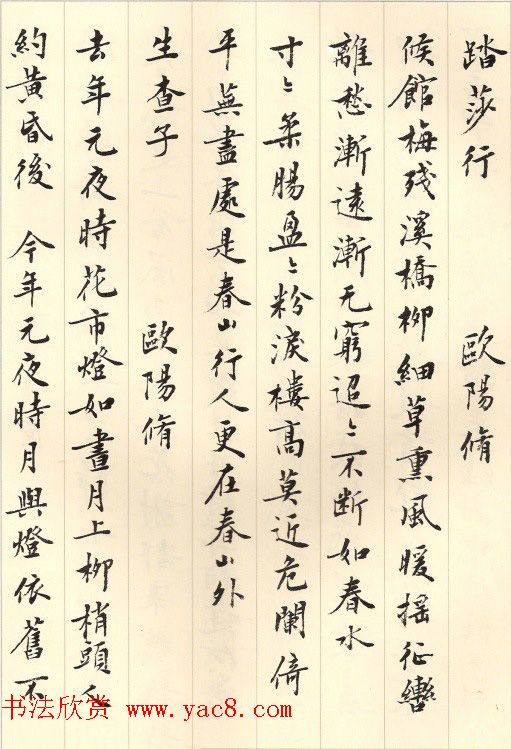 踏莎行 歐陽脩
候館梅殘溪橋柳細草熏風暖搖征轡
離愁漸遠漸无窮迢〻不断如春水
寸〻柔腸盈〻粉淚樓高莫近危闌倚
平蕪盡處是春山行人更在春山外
生查子 歐陽脩
去年元夜時花市燈如晝月上柳梢頭人
約黃昏後 今年元夜時月與燈依舊不
书法欣赏 www.yac8.com